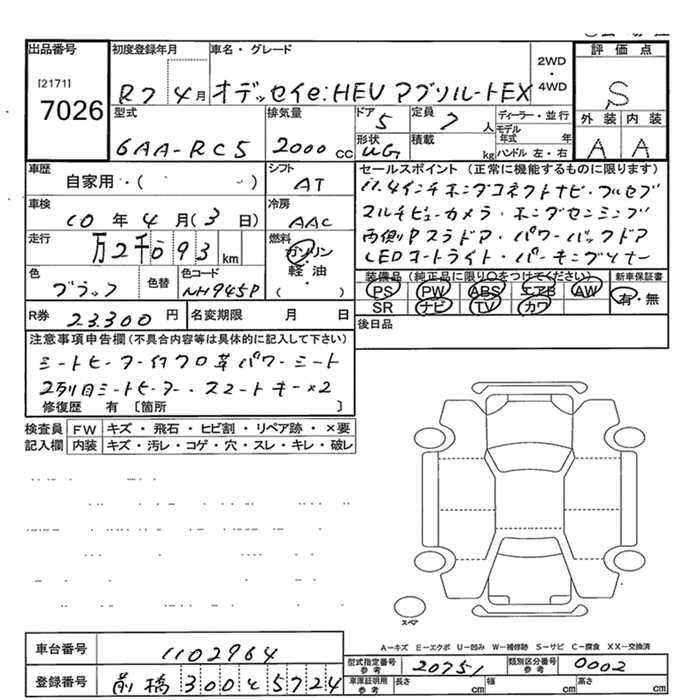 出品番号 初度登録年月 車名・グレード 評価点
[2171]
7026
R7 4月 オデッセイe:HEV アブソルートEX
2WD・4WD
S
外装 内装
A A
型式 排気量 ドア 定員 ディーラー・並行
6AA-RC5 2000cc 5 7人
モデル年式 年
形状 積載 ハンドル 左・右
UG kg
車歴 シフト セールスポイント (正常に機能するものに限ります)
自家用・( ) AT
11.4インチホンダコネクトナビ・フルセグ
車検 冷房
10年4月(3日) AAC
マルチビューカメラ・ホンダセンシング
走行 燃料
万2千093km ガソリン・軽油 ( )
両側Pスラドア・パワーバックドア
LEDオートライト・パーキングソナー
色 色替 色コード
ブラック NH945P
装備品(純正品に限り○をつけてください) 新車保証書
PS PW ABS エアB AW 有・無
SR ナビ TV カワ
R券 23.300円 名変期限 月 日
後日品
注意事項申告欄(不具合内容等は具体的に記入して下さい)
シートヒーター付クロ革パワーシート
2列目シートヒーター・スマートキー×2
修復歴 有 〔箇所 〕
検査員 FW キズ・飛石・ヒビ割・リペア跡・×要
記入欄 内装 キズ・汚レ・コゲ・穴・スレ・キレ・破レ
スペア
A-キズ E-エクボ U-凹み W-補修跡 S-サビ C-腐食 XX-交換済
車台番号 1102964
型式指定番号 参考 20751 類別区分番号 参考 0002
登録番号 前橋 300 そ 5724
車庫証明用 参考 長さ cm 幅 cm 高さ cm